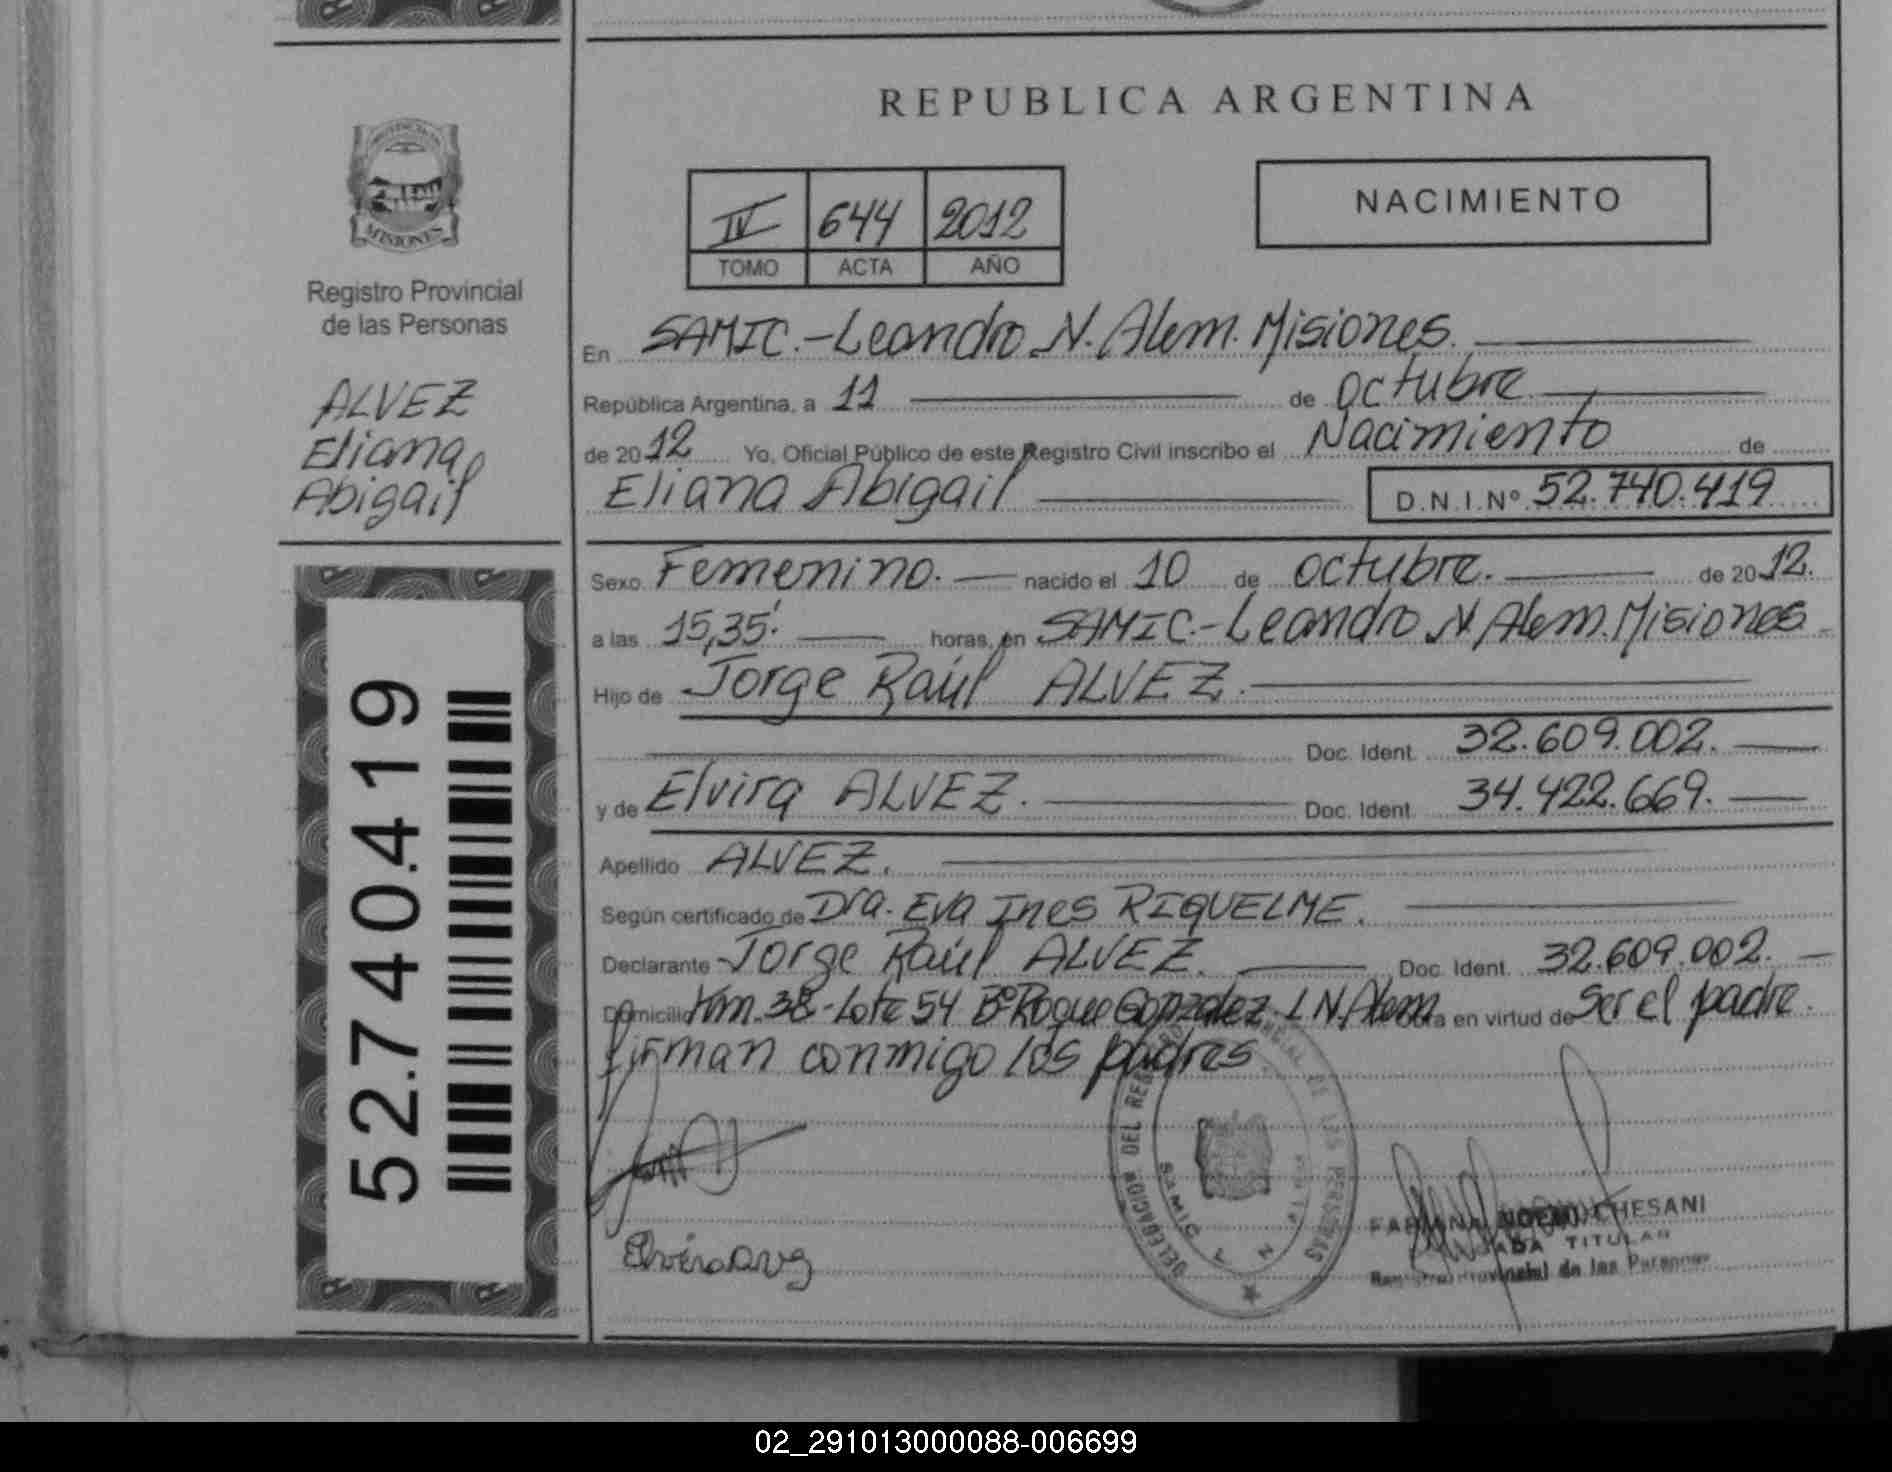 REPUBLICA ARGENTINA
MISIONES
Registro Provincial
de las Personas
ALVEZ
Eliana
Abigail
52.740.419
IV 644 2012
TOMO ACTA AÑO
NACIMIENTO
En SAMIC.-Leandro N. Alem. Misiones.
República Argentina, a 11 de octubre
de 2012 Yo, Oficial Público de este Registro Civil inscribo el Nacimiento de
Eliana Abigail D.N.I.Nº 52.740.419
Sexo Femenino. nacido el 10 de octubre. de 2012.
a las 15,35' horas, en SAMIC.-Leandro N. Alem. Misiones
Hijo de Jorge Raúl ALVEZ.
Doc. Ident. 32.609.002.
y de Elvira ALVEZ. Doc. Ident. 34.422.669.
Apellido ALVEZ.
Según certificado de Dra. Eva Ines RIQUELME.
Declarante Jorge Raúl ALVEZ. Doc. Ident. 32.609.002.
Domicilio Km. 38-Lote 54 Bº Roque Gonzalez L N. Alem Obra en virtud de Ser el padre.
firman conmigo los padres
DELEGACION DEL REGISTRO PROVINCIAL DE LAS PERSONAS
SAMIC
CHESANI
TITULAR
02_291013000088-006699